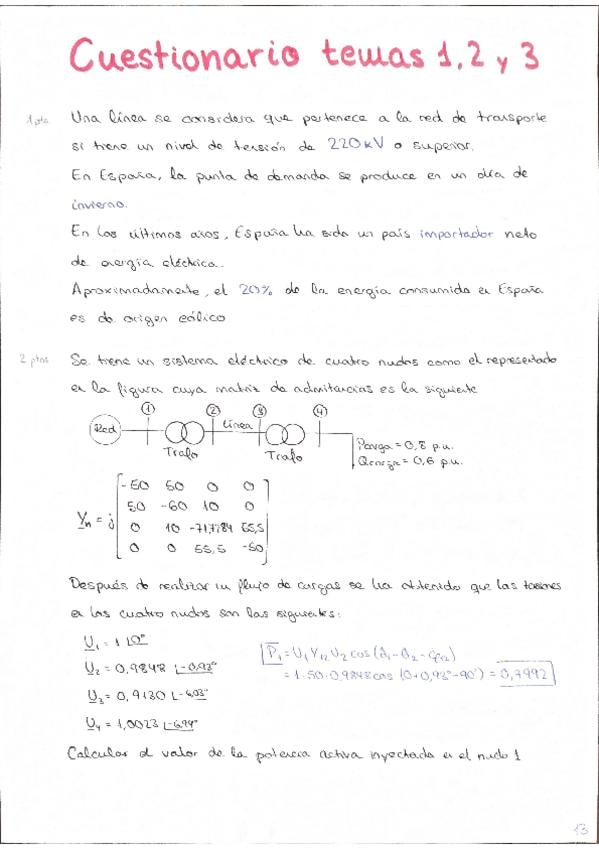 Cuestionario temas 1, 2 y 3
1 pto Una línea se considera que pertenece a la red de transporte
si tiene un nivel de tensión de 220 kV o superior.
En España, la punta de demanda se produce en un día de
invierno.
En los últimos años, España ha sido un país importador neto
de energía eléctrica.
Aproximadamente, el 20% de la energía consumida en España
es de origen eólico
2 ptos Se tiene un sistema eléctrico de cuatro nudos como el representado
en la figura cuya matriz de admitancias es la siguiente
① ② ③ ④
Red Línea
Trafo Trafo
Pcarga = 0,8 p.u.
Qcarga = 0,6 p.u.
Yn = j
-50 50 0 0
50 -60 10 0
0 10 -71,7284 55,5
0 0 55,5 -50
Después de realizar un flujo de cargas se ha obtenido que las tensiones
en los cuatro nudos son las siguientes:
U1 = 1 ∟0°
U2 = 0,9848 ∟-0,93°
U3 = 0,9130 ∟-6,03°
U4 = 1,0023 ∟-6,94°
P1 = U1 Y12 U2 cos (θ1 - θ2 - φ12)
= 1·50·0,9848 cos (0+0,93°-90°) = 0,7992
Calcular el valor de la potencia activa inyectada en el nudo 1
13